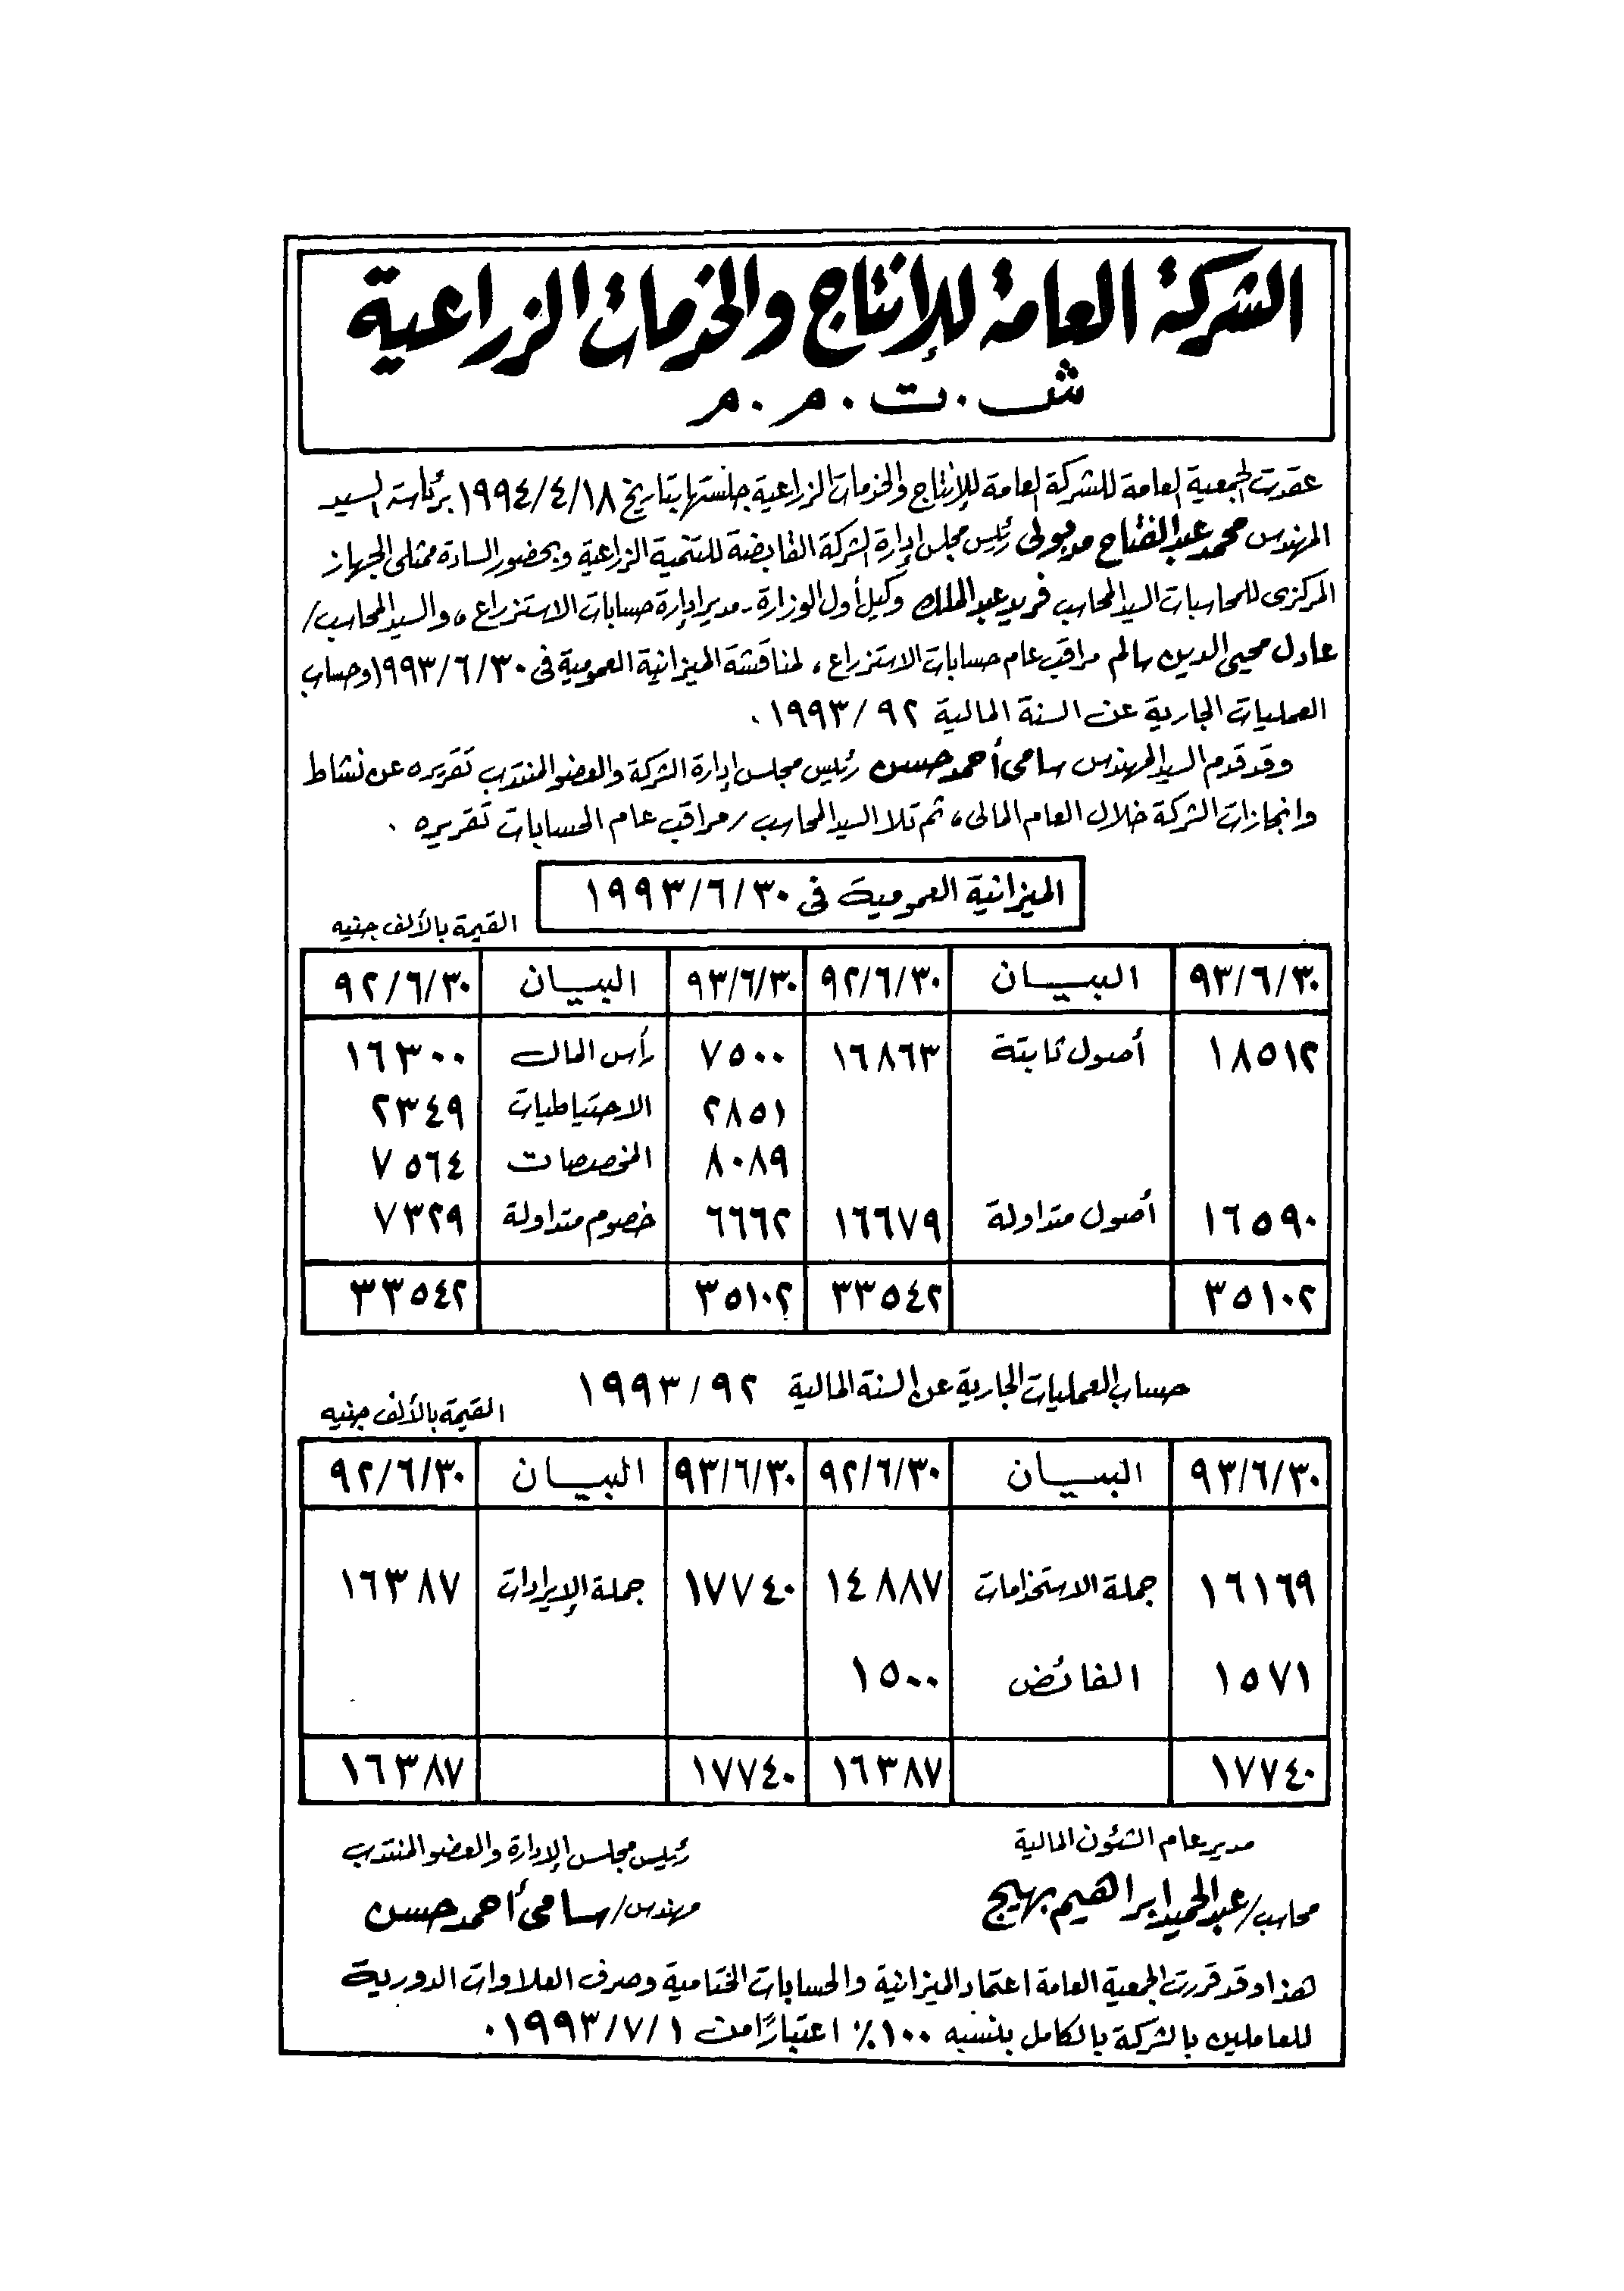 الشركة العامة للإنتاج والخدمات الزراعية
ش.ت.م.م
عقدت الجمعية العامة للشركة العامة للإنتاج والخدمات الزراعية جلستها بتاريخ ١٩٩٤/٤/١٨ برئاسة السيد
المهندس محمد عبدالفتاح مدبولى رئيس مجلس إدارة الشركة القابضة للتنمية الزراعية وبحضور السادة ممثلى الجهاز
المركزى للمحاسبات السيد المحاسب فريد عبدالملك وكيل أول الوزارة - مدير إدارة حسابات الاستزراع ، والسيد المحاسب /
عادل محيى الدين سالم مراقب عام حسابات الاستزراع ، لمناقشة الميزانية العمومية فى ١٩٩٣/٦/٣٠ وحساب
العمليات الجارية عن السنة المالية ١٩٩٣/٩٢ .
وقد قدم السيد المهندس سامى أحمد حسن رئيس مجلس إدارة الشركة والعضو المنتدب تقريره عن نشاط
وانجازات الشركة خلال العام المالى ، ثم تلا السيد المحاسب / مراقب عام الحسابات تقريره .
الميزانية العمومية فى ١٩٩٣/٦/٣٠
القيمة بالألف جنيه
٩٣/٦/٣٠ البيـــان ٩٢/٦/٣٠ ٩٣/٦/٣٠ البيـــان ٩٢/٦/٣٠
١٨٥١٢ أصول ثابتة ١٦٨٦٣ ٧٥٠٠ رأس المال ١٦٣٠٠
٢٨٥١ الاحتياطيات ٢٣٤٩
٨٠٨٩ المخصصات ٧٥٦٤
١٦٥٩٠ أصول متداولة ١٦٦٧٩ ٦٦٦٢ خصوم متداولة ٧٣٢٩
٣٥١٠٢ ٣٣٥٤٢ ٣٥١٠٢ ٣٣٥٤٢
حساب العمليات الجارية عن السنة المالية ١٩٩٣/٩٢
القيمة بالألف جنيه
٩٣/٦/٣٠ البيـــان ٩٢/٦/٣٠ ٩٣/٦/٣٠ البيـــان ٩٢/٦/٣٠
١٦١٦٩ جملة الاستخدامات ١٤٨٨٧ ١٧٧٤٠ جملة الإيرادات ١٦٣٨٧
١٥٧١ الفائض ١٥٠٠
١٧٧٤٠ ١٦٣٨٧ ١٧٧٤٠ ١٦٣٨٧
مدير عام الشئون المالية
رئيس مجلس الإدارة والعضو المنتدب
محاسب/عبدالحميد ابراهيم بهيج
مهندس/سامى أحمد حسن
هذا وقد قررت الجمعية العامة اعتماد الميزانية والحسابات الختامية وصرف العلاوات الدورية
للعاملين بالشركة بالكامل بنسبه ١٠٠٪ اعتبارًا من ١٩٩٣/٧/١ .